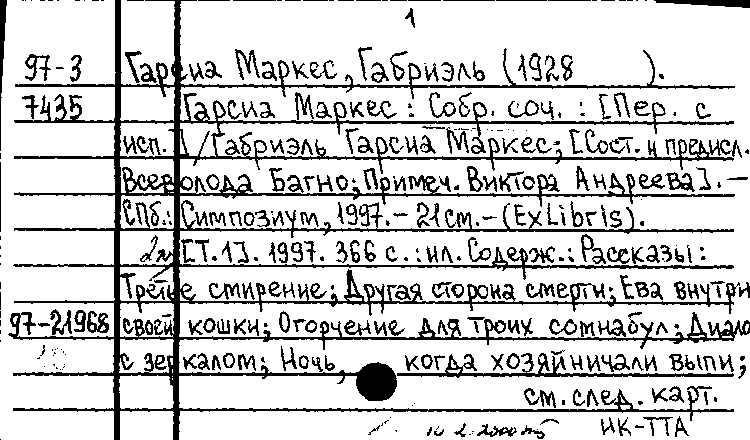 1
97-3 Гарсиа Маркес, Габриэль (1928 ).
7435 Гарсиа Маркес : Собр. соч. : [Пер. с
исп.] / Габриэль Гарсиа Маркес; [Сост. и предисл.
Всеволода Багно; Примеч. Виктора Андреева]. –
СПб.: Симпозиум, 1997. – 21см. – (ExLibris).
[Т.1]. 1997. 366 с. : ил. Содерж.: Рассказы:
Третье смирение; Другая сторона смерти; Ева внутри
97-21968 своей кошки; Огорчение для троих сомнабул; Диало
с зеркалом; Ночь, когда хозяйничали выпи;
см. след. карт.
НК-ТТА